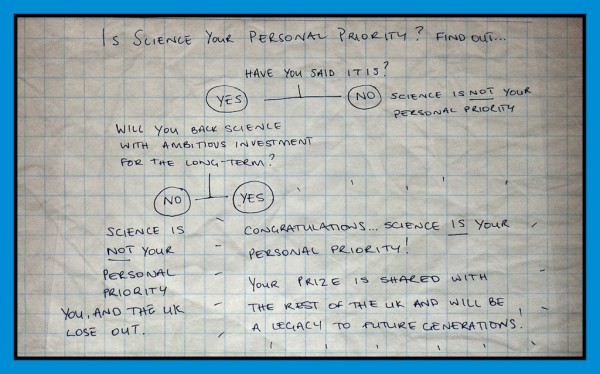 IS SCIENCE YOUR PERSONAL PRIORITY? FIND OUT...
HAVE YOU SAID IT IS?
YES
NO
SCIENCE IS NOT YOUR
PERSONAL PRIORITY
WILL YOU BACK SCIENCE
WITH AMBITIOUS INVESTMENT
FOR THE LONG-TERM?
NO
YES
SCIENCE IS
NOT YOUR
PERSONAL
PRIORITY
YOU, AND THE UK
LOSE OUT.
CONGRATULATIONS... SCIENCE IS YOUR
PERSONAL PRIORITY!
YOUR PRIZE IS SHARED WITH
THE REST OF THE UK AND WILL BE
A LEGACY TO FUTURE GENERATIONS.